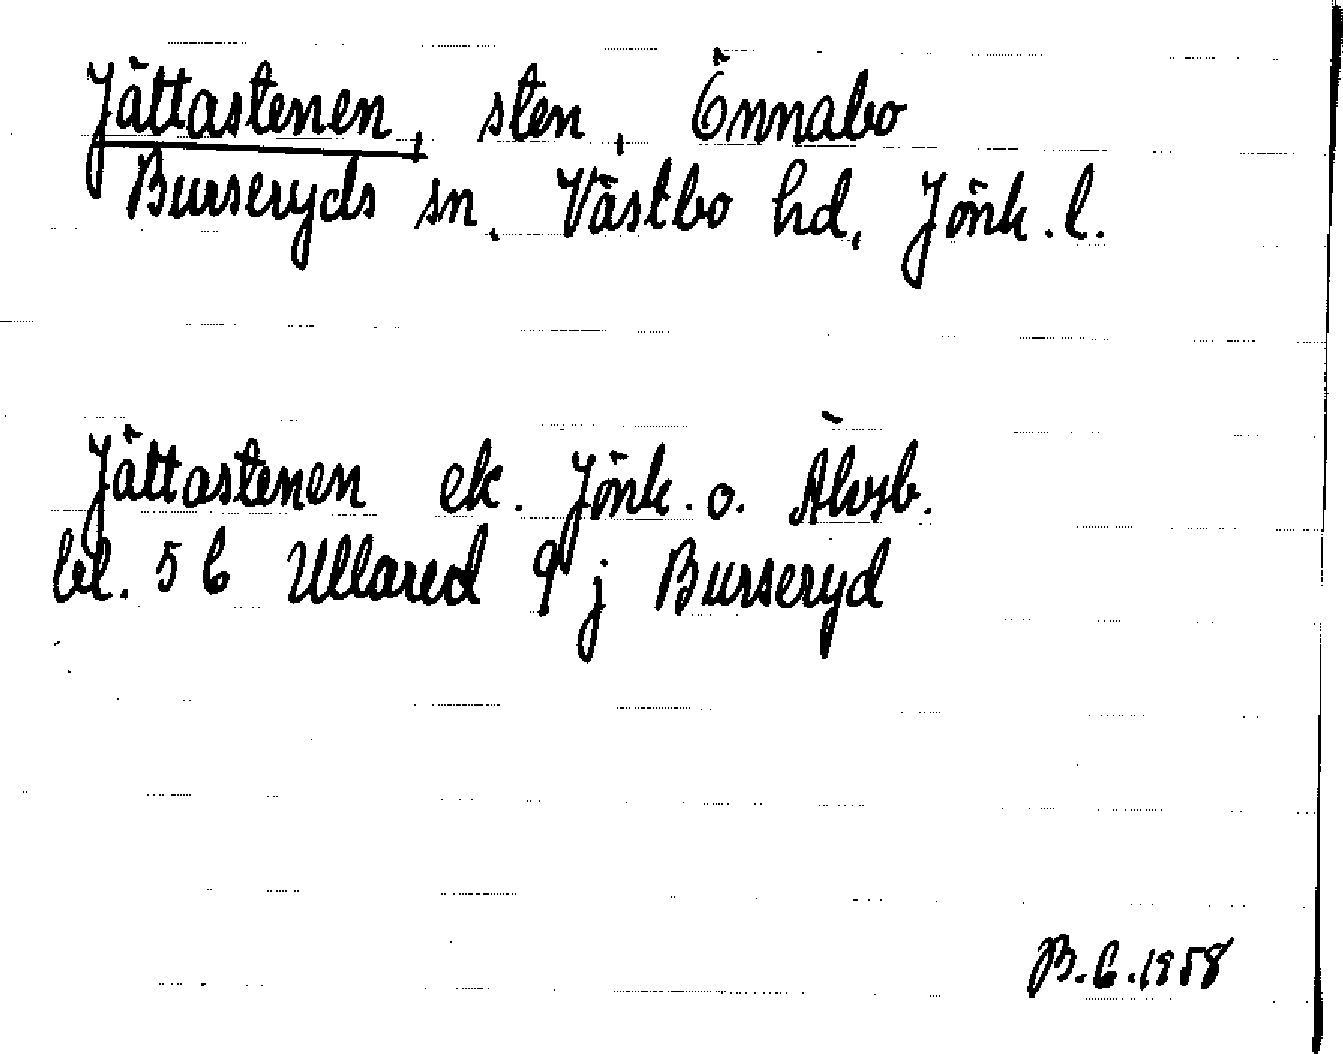 Jättastenen, sten, Önnabo
Burseryds sn, Västbo hd, Jönk.l.
Jättastenen ek. Jönk. o. Älvsb.
bl. 56 Ullared 9 j Burseryd
B.G.1958